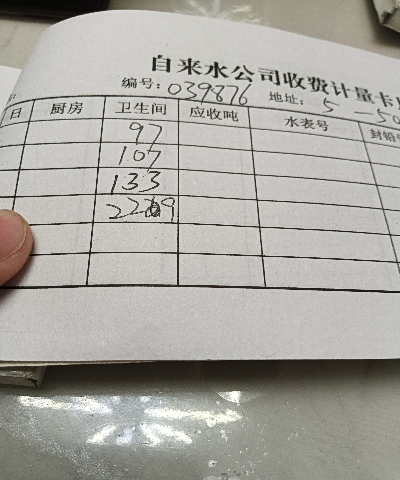 自来水公司收费计量卡
编号: 039876 地址: 5-50
日 厨房 卫生间 应收吨 水表号 封铅
97
107
133